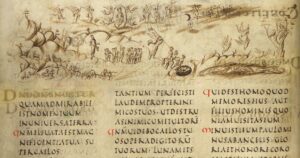 DNEDNSNOSTER
QUAMADMIRABILE
ESTNOMENTUUM
INUNIVERSATERRA
QNMELEVATAESTMAG
NIFICENTIATUA·SU
PERCAELOS·
TANTIUM PERFECISTI
LAUDEMPROPTERINI
MICOSTUOS·UTDESTRU
ASINIMICUMETULTORE
QNMVIDEBOCAELOSTU
OSOPERADIGITORU
TUORUM·LUNAMETS
QUIDESTHOMOQUOD
MEMORESEIUS·AUT
FILIUSHOMINISQUO
NIAMVISITASEUM
MINUISTIEUMPAULOMI
NUSABANGELIS·GLO
RIAETHONORECORO